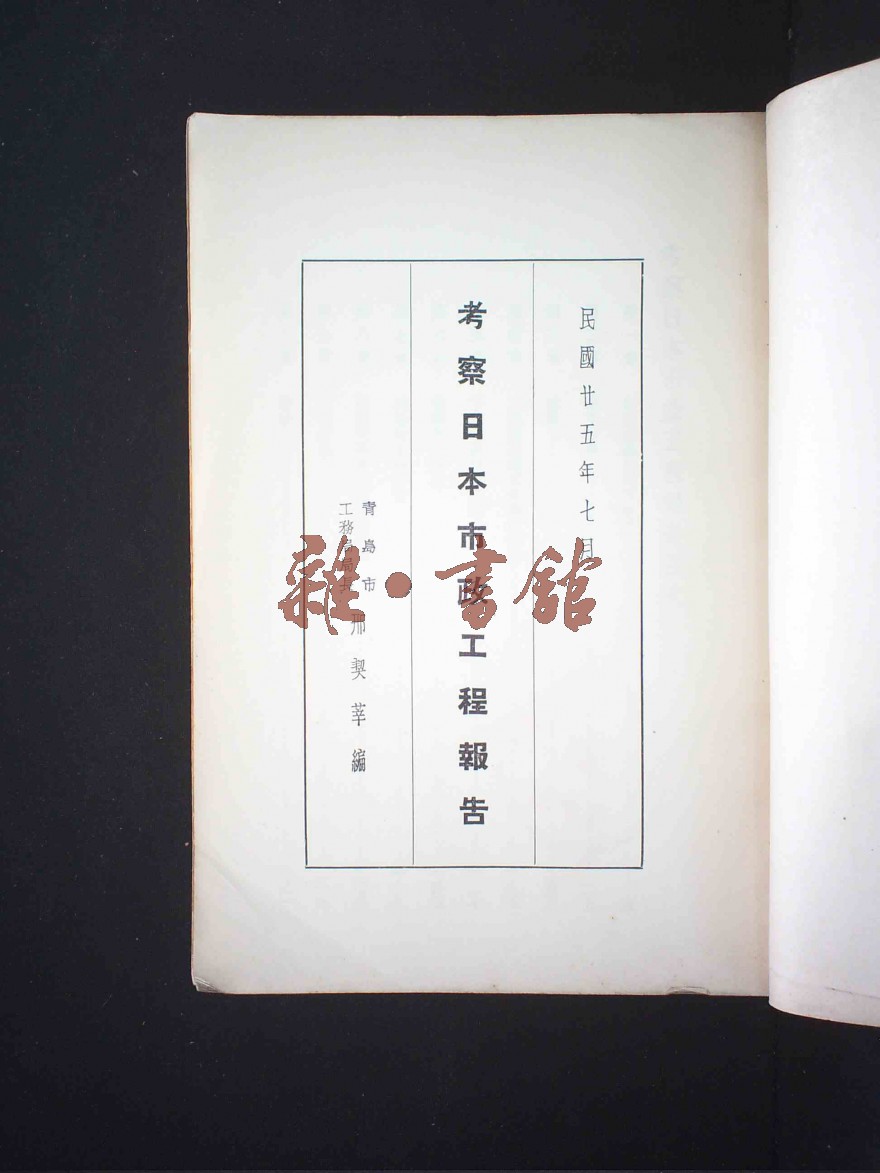 民國廿五年七月
考察日本市政工程報告
青島市
工務局局長
邢契莘編
雜·書館